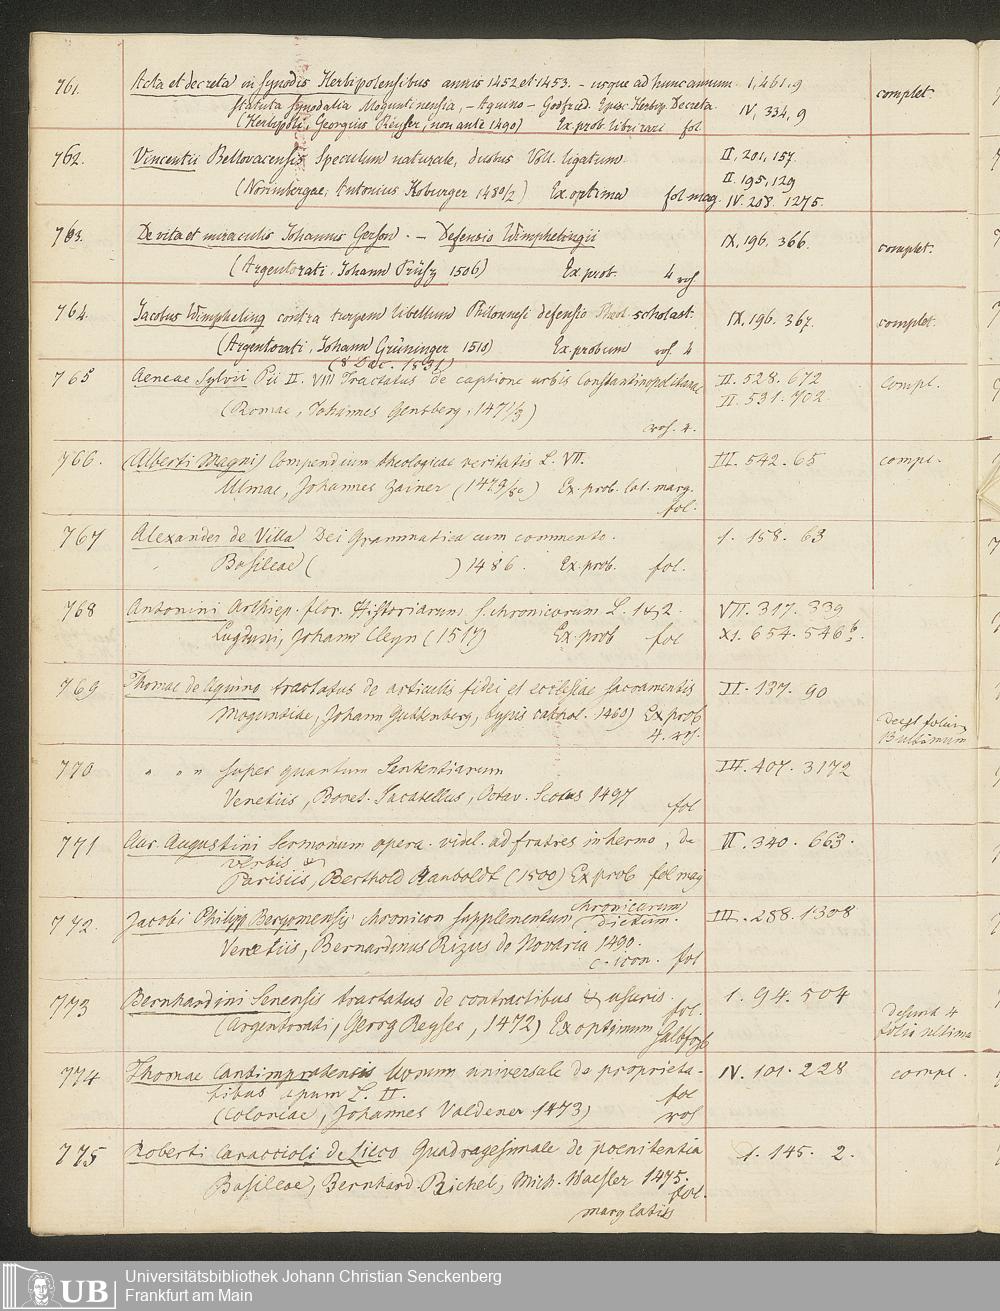 761. Acta et decreta in Synodis Herbipolensibus annis 1452 et 1453. - usque ad hunc annum. 1, 461, 9 complet.
Statuta Synodalia Moguntinensia, - Aquino - Godfried. Episc. Herbip. Decreta. IV, 334, 9
(Herbipoli, Georgius Reyser, non ante 1490) Ex. prob. libri rari fol
762. Vincentii Bellovacensis Speculum naturale, duobus Voll. ligatum. II, 201, 157.
II. 195, 129
(Norimbergae, Antonius Koburger 1480/2) Ex. optima fol mag. IV. 208. 1275.
763. De vita et miraculis Johannis Gerson. - Defensio Wimphelingii IX, 196. 366. complet.
(Argentorati. Johann Prüsz 1506) Ex prob. 4 roh.
764. Jacobus Wimpheling contra turpem libellum Philomusi defensio Theol. scholast. IX, 196. 367. complet.
(Argentorati, Johann Grüninger 1510) Ex. probum roh. 4
(8 Dec. 1831)
765 Aeneae Sylvii Pii II. VIII Tractatus de captione urbis Constantinopolitanae II. 528. 672 compl.
II. 531. 702.
(Romae, Johannes Gensberg, 1473)
roh. 4.
766. (Alberti Magni) Compendium theologicae veritatis L. VII. III. 542. 65 compl.
Ulmae, Johannes Zainer (1479/80) Ex. prob. lat. marg.
fol.
767 Alexander de Villa Dei Grammatica cum commento. 1. 158. 63
Basileae ( ) 1486. Ex. prob. fol.
768 Antonini Archiep. flor. Historiarum S. chronicorum L. 1 & 2. VII. 317. 339
Lugduni, Johann Cleyn (1517) Ex. prob fol XI. 654. 546 b.
769 Thomae de Aquino tractatus de articulis fidei et ecclesiae sacramentis II. 137. 90
Moguntiae, Johann Guttenberg, typis cathol. 1460) Ex prob
4. roh.
Deest folium
770 " " " super quartum Sententiarum III. 407. 3172
Venetiis, Bonet. Locatellus, Octav. Scotus 1497 fol
771 Aur. Augustini Sermonum opera. videl. ad fratres in hermo, de II. 340. 663.
verbis &
Parisiis, Berthold Ranboldt (1500) Ex prob fol mag
772. Jacobi Philipp Bergomensis chronicon supplementum chronicarum III. 288. 1308
dictum.
Venetiis, Bernardinus Rizus de Novaria 1490.
c. icon. fol
773 Bernhardini Senensis tractatus de contractibus & usuris. 1. 94. 504
fol.
(Argentorati, Georg Reyser, 1472) Ex optimum
Desunt 4
folia ultima
774 Thomae Cantimpratensis bonum universale de proprieta- IV. 101. 228 compl.
tibus apum L. II. fol
(Coloniae, Johannes Valdener 1473) roh
775 Roberti Caraccioli de Licio Quadragesimale de poenitentia 1. 145. 2.
Basileae, Bernhard. Richel, Mich. Waefsler 1475.
fol.
marg latis
UB Universitätsbibliothek Johann Christian Senckenberg
Frankfurt am Main